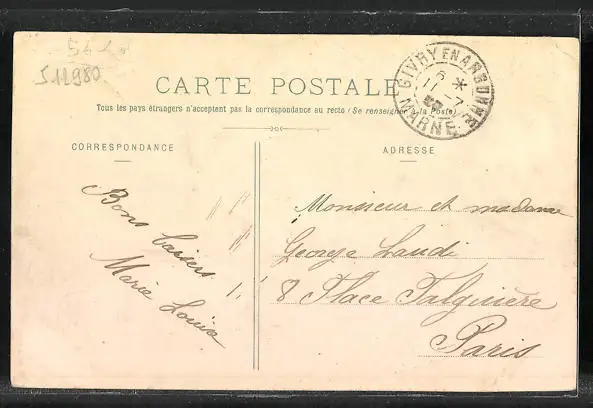 J 12980
CARTE POSTALE
Tous les pays étrangers n'acceptent pas la correspondance au recto (Se renseigner à la Poste)
GIVRY EN ARGONNE
6 *
11 - 7
MARNE
CORRESPONDANCE
ADRESSE
Bons baisers
Marie Louise
Monsieur et madame
George Laudi
8 Place Falguière
Paris